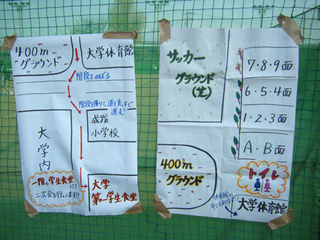 400m
グラウンド
大学体育館
階段をのぼる
階段を降りて道をまっすぐ
進む
成蹊
小学校
大学内
一階の学生食堂にて
二次会を行います!!
大学
第一学生食堂
サッカー
グラウンド
(芝)
7・8・9面
6・5・4面
1・2・3面
A・B面
400m
グラウンド
トイレ
大学体育館